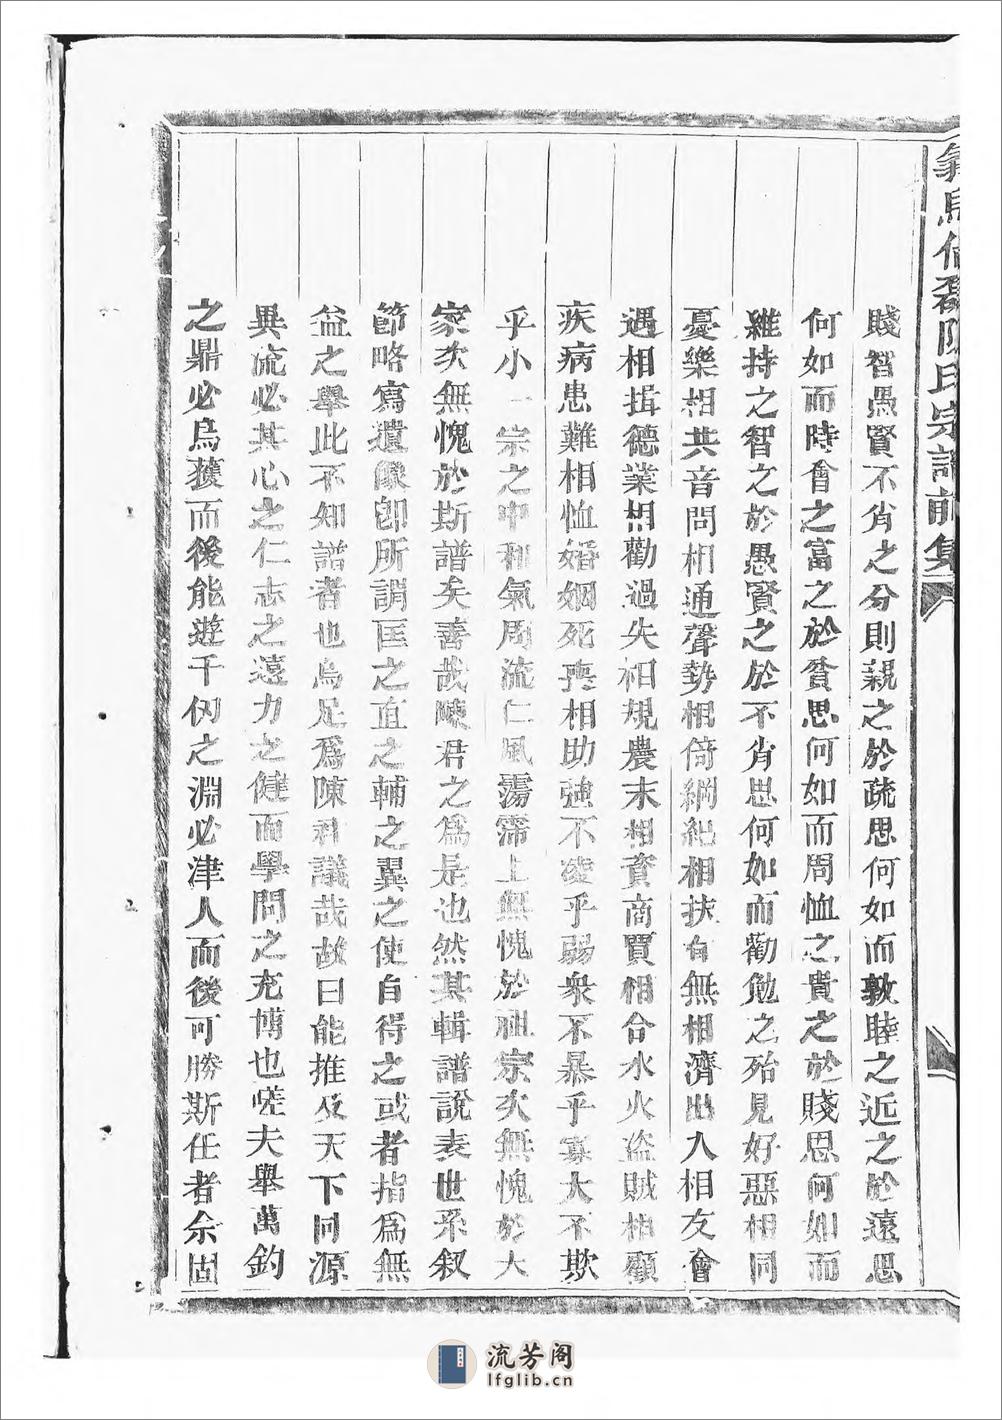 義烏倍磊陳氏宗譜前集
賤智愚賢不肖之分則親之於疏思何如而敦睦之近之於遠思
何如而時會之富之於貧思何如而周恤之貴之於賤思何如而
維持之智之於愚賢之於不肖思何如而勸勉之殆見好惡相同
憂樂相共音問相通聲勢相倚綱紀相扶有無相濟出入相友會
遇相揖德業相勸過失相規農末相資商賈相合水火盜賊相顧
疾病患難相恤婚姻死喪相助強不凌乎弱衆不暴乎寡大不欺
乎小一宗之中和氣周流仁風霶霈上無愧於祖宗次無愧於大
家次無愧於斯譜矣善哉陳君之爲是也然其輯譜說表世系叙
節略寫遺像卽所謂匡之直之輔之翼之使自得之或者指爲無
益之舉此不知譜者也烏足爲陳君議哉故曰能推及天下同源
異流必其心之仁志之遠力之健而學問之充博也嗟夫舉萬鈞
之鼎必烏獲而後能遊千仞之淵必津人而後可勝斯任者余固
流芳阁
lfglib.cn